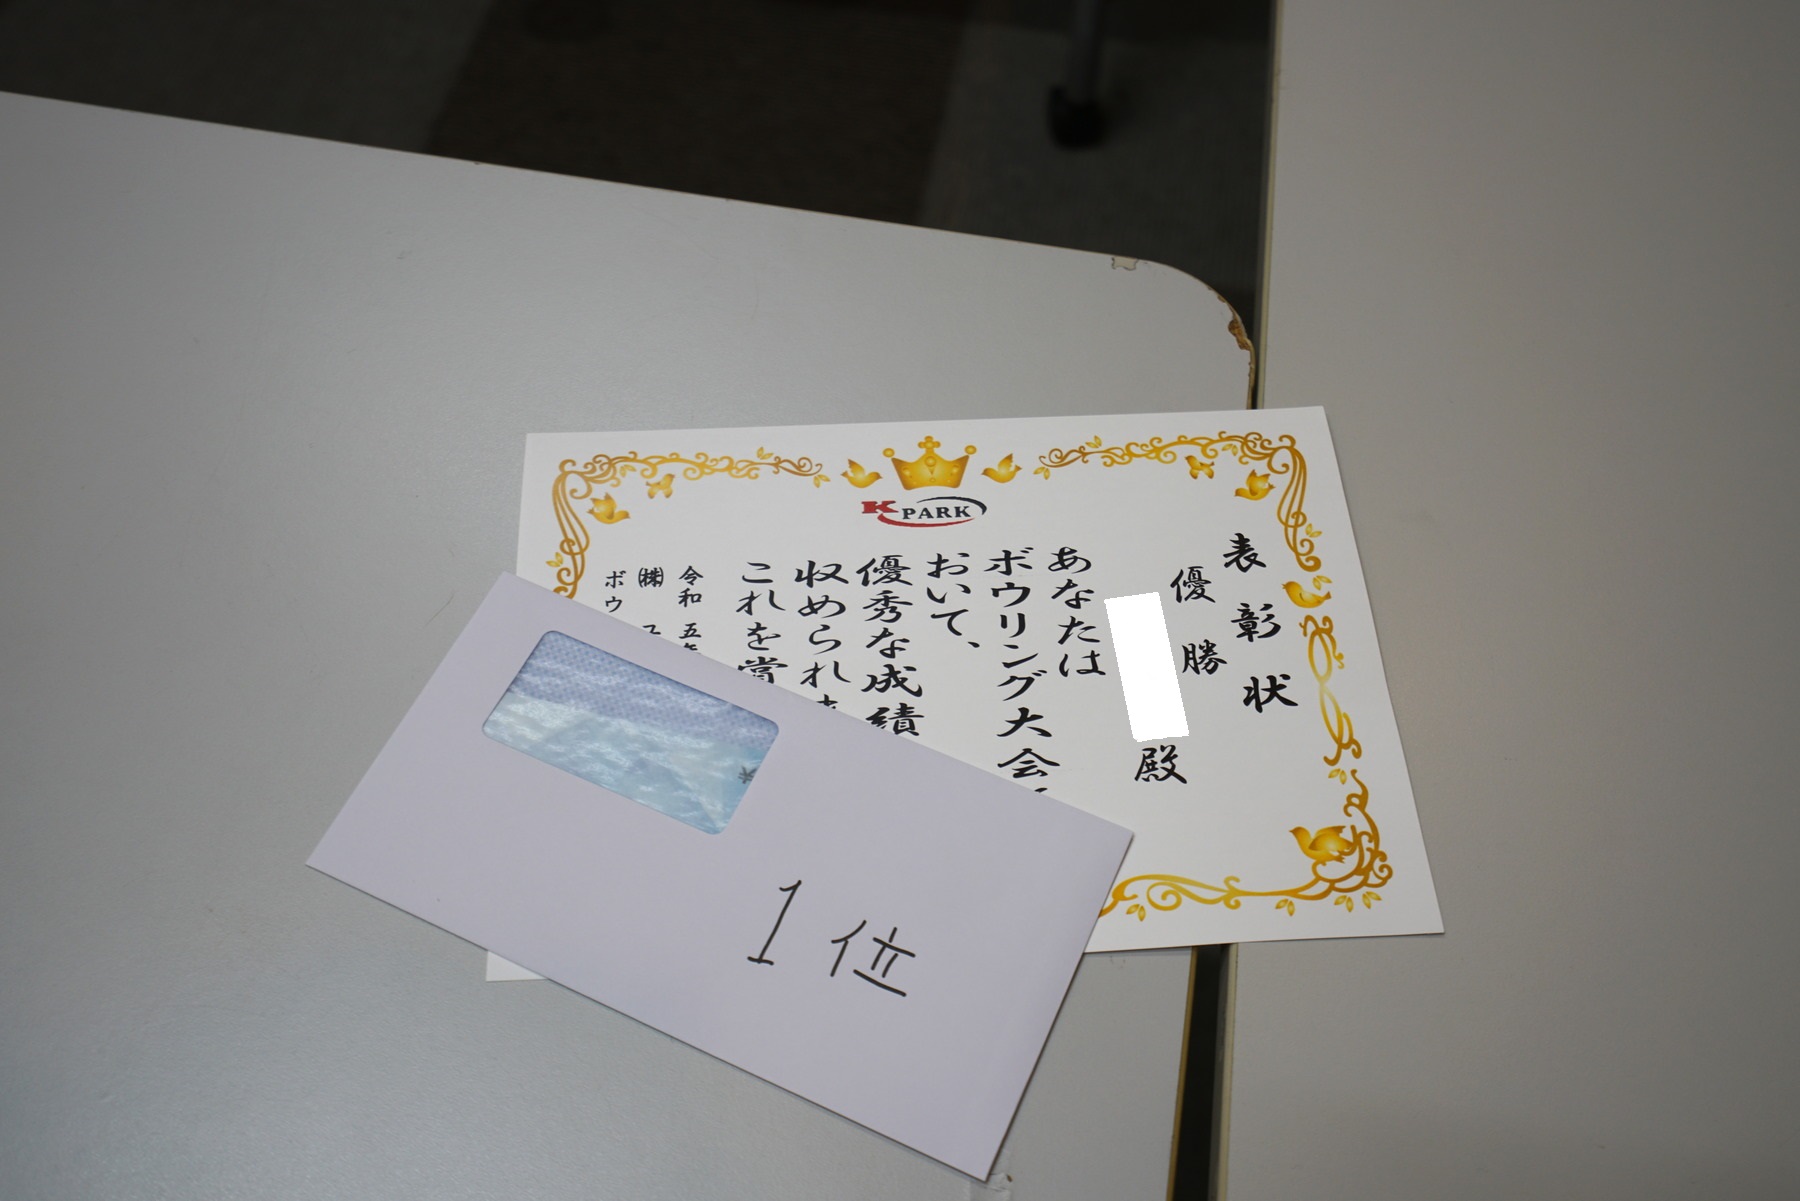 K PARK
表彰状
優勝
殿
あなたは
ボウリング大会
おいて、
優秀な成績
収められ
これを賞
令和五年
㈱
ボウ
1位